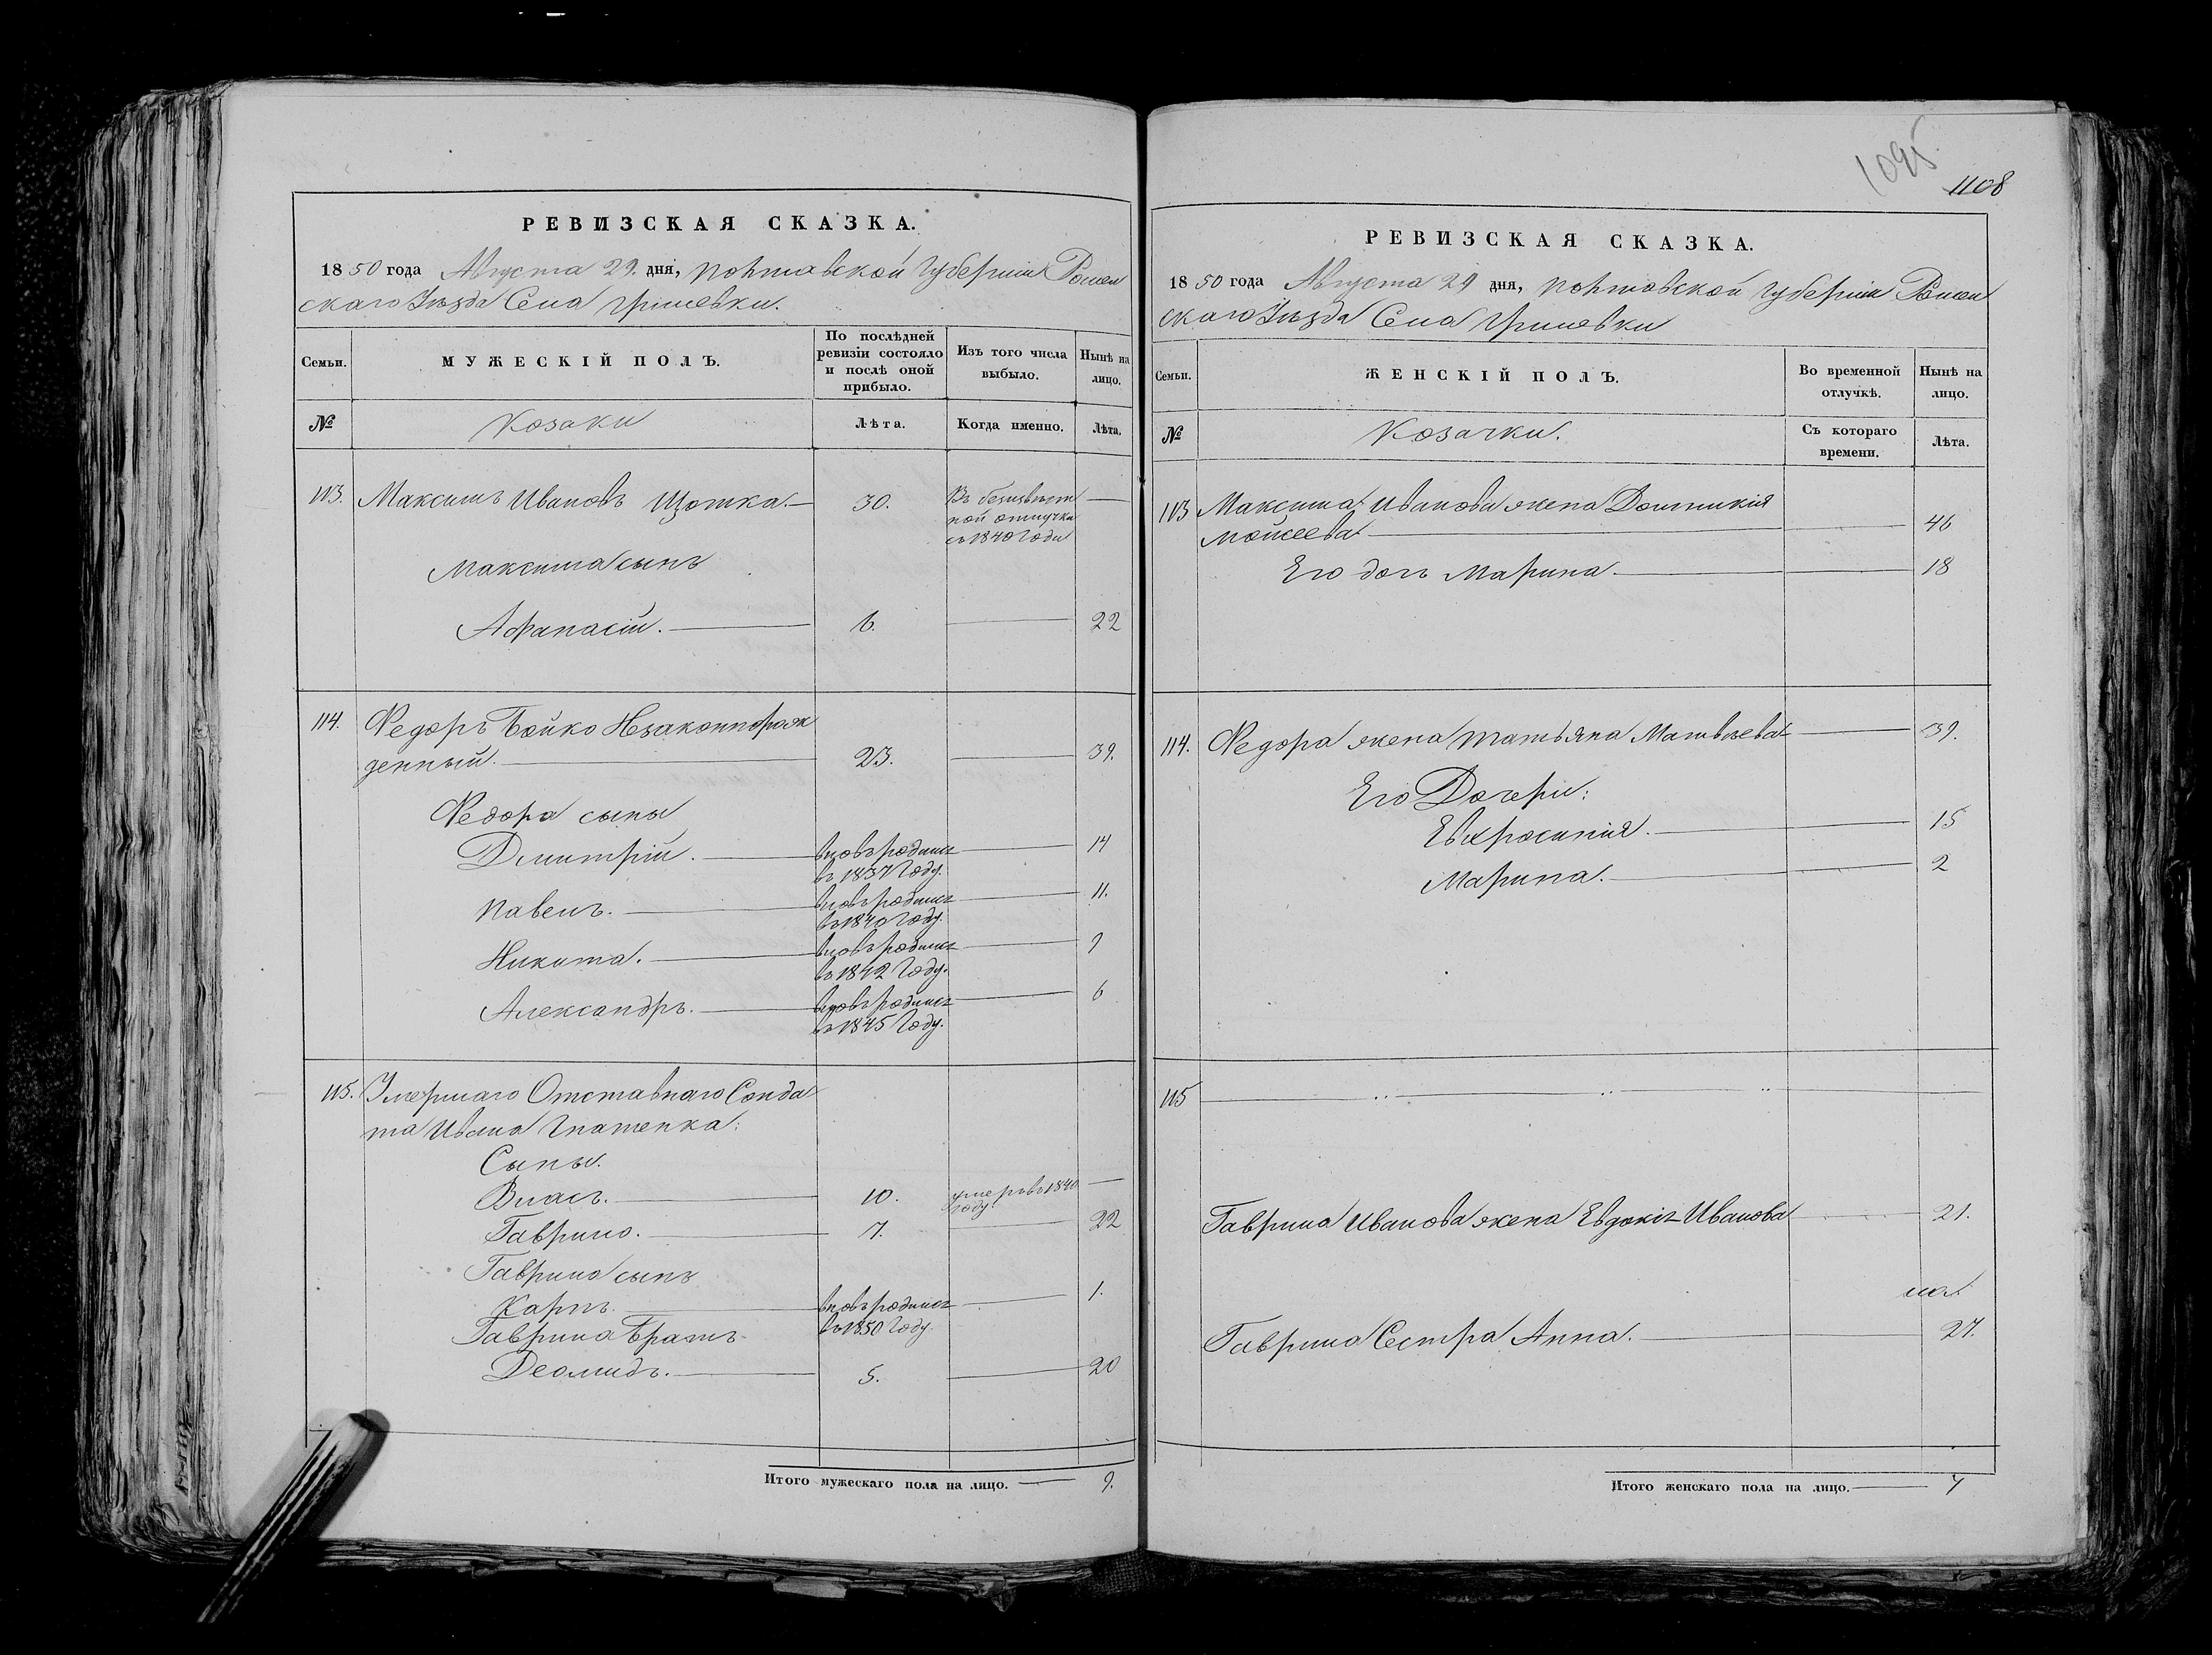 РЕВИЗСКАЯ СКАЗКА.
1850 года Августа 29. дня, Полтавской Губерніи Ромен
скаго Уѣзда Села Гришевки.
Семьи.
МУЖЕСКІЙ ПОЛЪ.
По послѣдней ревизіи состояло и послѣ оной прибыло.
Изъ того числа выбыло.
Нынѣ на лицо.
№
Козаки
Лѣта.
Когда именно.
Лѣта.
113. Максимъ Ивановъ Щотка. — 30. Въ безизвѣстн —
ной отлучки
съ 1840 Года
Максима сынъ
Афанасій. — 6. — 22
114. Федоръ Бойко Незаконнорож
денный. — 23. — 39.
Федора сыны
Дмитрій. — вновьродился — 14
въ 1837 Году.
Павелъ. — вновьродился — 11.
въ 1840 Году.
Никита. — вновьродился — 9
въ 1842 Году.
Александръ. — вновьродился — 6
въ 1845 Году.
115. Умершаго Отставнаго Солда
та Ивана Гнатенка:
Сыны.
Власъ. — 10. умеръ въ 1840 —
году
Гаврило. — 7. — 22
Гаврила сынъ
Карпъ. — вновьродился — 1.
въ 1850 Году.
Гаврила Братъ
Деомидъ. — 5. — 20
Итого мужескаго пола на лицо. — 9.
1095
1108
РЕВИЗСКАЯ СКАЗКА.
1850 года Августа 29 дня, Полтавской Губерніи Ромен
скаго Уѣзда Села Гришевки
Семьи.
ЖЕНСКІЙ ПОЛЪ.
Во временной отлучкѣ.
Нынѣ на лицо.
№
Козачки.
Съ котораго времени.
Лѣта.
113 Максима Иванова жена Домникія
Мойсеева — 46
Его дочь Марина. — 18
114. Федора жена Татьяна Матвѣева — 39.
Его Дочери:
Евфросинія. — 15
Марина. — 2
115
Гаврила Иванова жена Евдокія Иванова — 21.
на
Гаврила Сестра Анна. — 27.
Итого женскаго пола на лицо. — 7